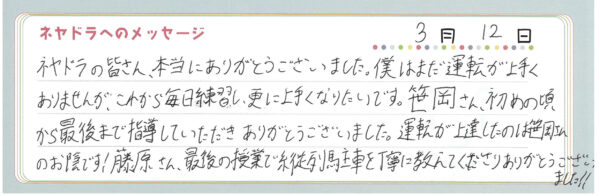 ネヤドラへのメッセージ 3月 12日
ネヤドラの皆さん、本当にありがとうございました。僕はまだ運転が上手く
ありませんが、これから毎日練習し、更に上手くなりたいです。笹岡さん、初めの頃
から最後まで指導していただきありがとうございました。運転が上達したのは笹岡さん
のお陰です!藤原さん、最後の授業で縦列駐車を丁寧に教えてくださりありがとうござい
ました!!